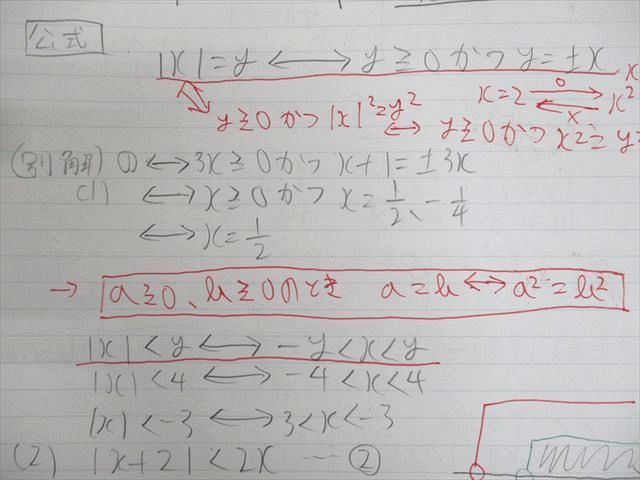 公式
|x|=y ⟷ y≧0かつy=±x
y≧0かつ|x|²=y² ⟷ y≧0かつx²=y²
x=2 ⟶ x²
○
×
(別解) ① ⟷ 3x≧0かつx+1=±3x
(1) ⟷ x≧0かつx=1/2、-1/4
⟷ x=1/2
→ a≧0、b≧0のとき a=b ⟷ a²=b²
|x|<y ⟷ -y<x<y
|x|<4 ⟷ -4<x<4
|x|<-3 ⟷ 3<x<-3
(2) |x+2|<2x … ②